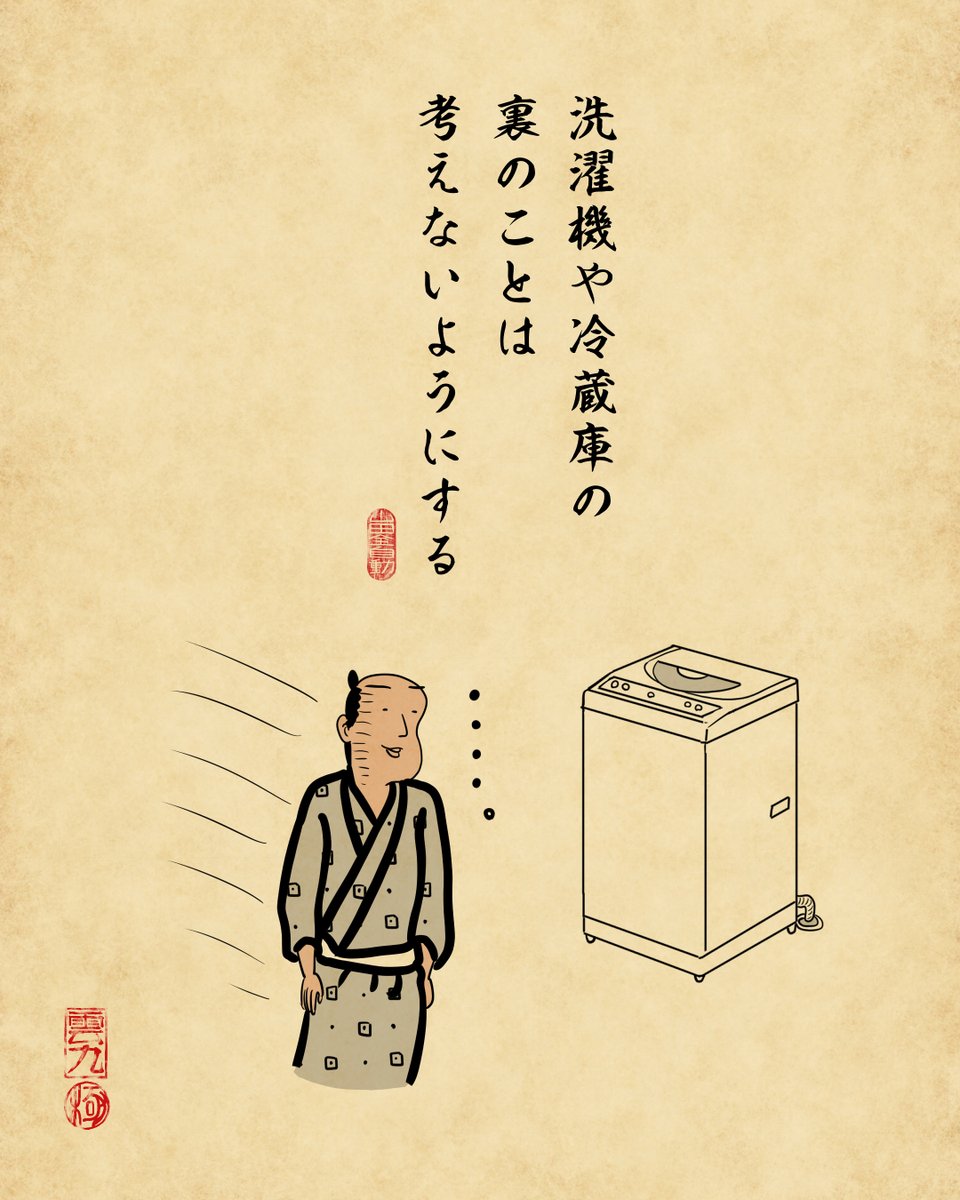 洗濯機や冷蔵庫の
裏のことは
考えないようにする
雲九